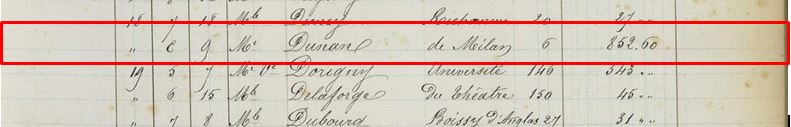 18 7 18 Mlle Denoy Richomme 20 27 "
" 6 9 Mr Dunan de Milan 6 852.60
19 5 7 Me Ve Dorigny Université 146 543 "
" 6 15 Mlle Delaforge du Théatre 150 45 "
" 7 8 Mlle Dubourg Boissy d'Anglas 27 31 "